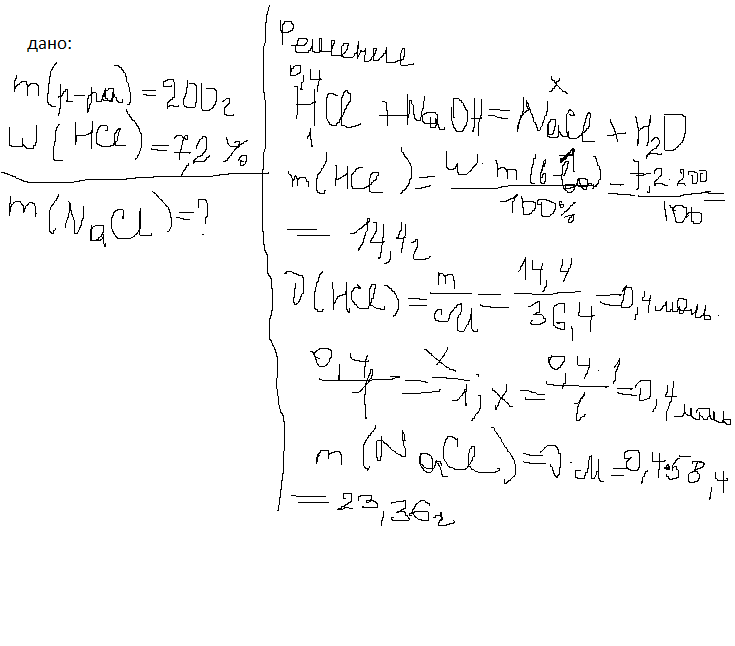 дано:
m(р-ра) = 200г
W(HCl) = 7,2 %
m(NaCl) = ?
Решение
0,4 x
HCl + NaOH = NaCl + H2O
1
m(HCl) = W · m(в-ва) / 100% = 7,2 · 200 / 100
= 14,4г
ν(HCl) = m / M = 14,4 / 36,4 = 0,4 моль.
0,4 / 1 = x / 1; x = 0,4 · 1 / 1 = 0,4 моль
m(NaCl) = ν · M = 0,4 · 58,4
= 23,36г